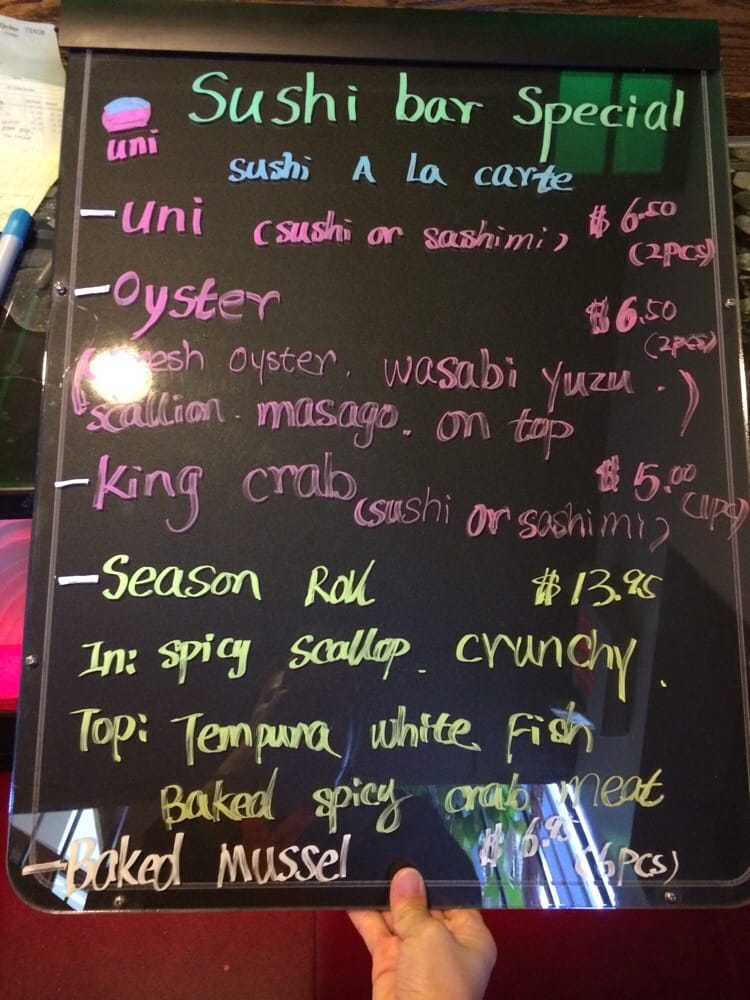 Sushi bar Special
uni
sushi A La carte
- uni (sushi or sashimi) $6.50
(2pcs)
- Oyster $6.50
(2pcs)
(Fresh oyster. wasabi yuzu.
scallion. masago. on top)
- King crab $5.00 (1pc)
(sushi or sashimi)
- Season Roll $13.95
In: spicy scallop. crunchy.
Top: Tempura white fish
Baked spicy crab meat
- Baked Mussel $6.95 (6pcs)